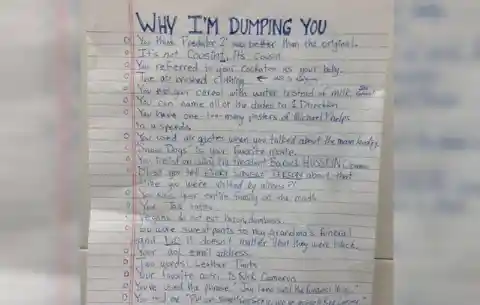 WHY I'M DUMPING YOU
You think Predator 2 was better than the original.
It's not Cousint, It's Cousin
You referred to your cockatoo as your baby.
Tie dye clothing
You eat your cereal with water instead of milk.
You can name all of the dudes in 1 Direction
You have one too many posters of Michael Phelps
You use air quotes when you talked about the moon landing
"Snow Dogs" is your favorite movie.
You insist on using President Barack HUSSEIN Obama
Must you tell EVERY SINGLE PERSON about that
time you were visited by aliens?!
your entire family on the mouth
Vegans do not eat bacon, dumbass.
You wore sweat pants to my grandma's funeral
and NO it doesn't matter that they were black.
Your aol email address.
Two words: Leather Pants
Your favorite actor is Kirk Cameron
You've used the phrase "Jay Leno
You tell me "Put on something sexy, we're